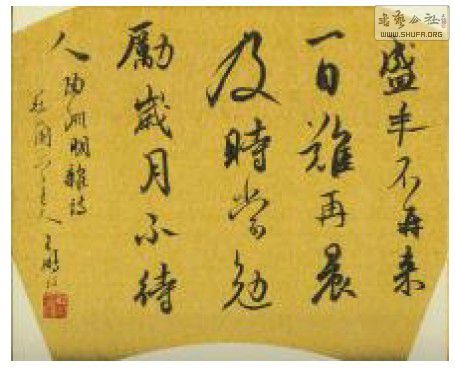 盛年不再来
一日難再晨
及時當勉
勵歲月不待
人 陶渊明雜詩
書藝公社
WWW.SHUFA.ORG